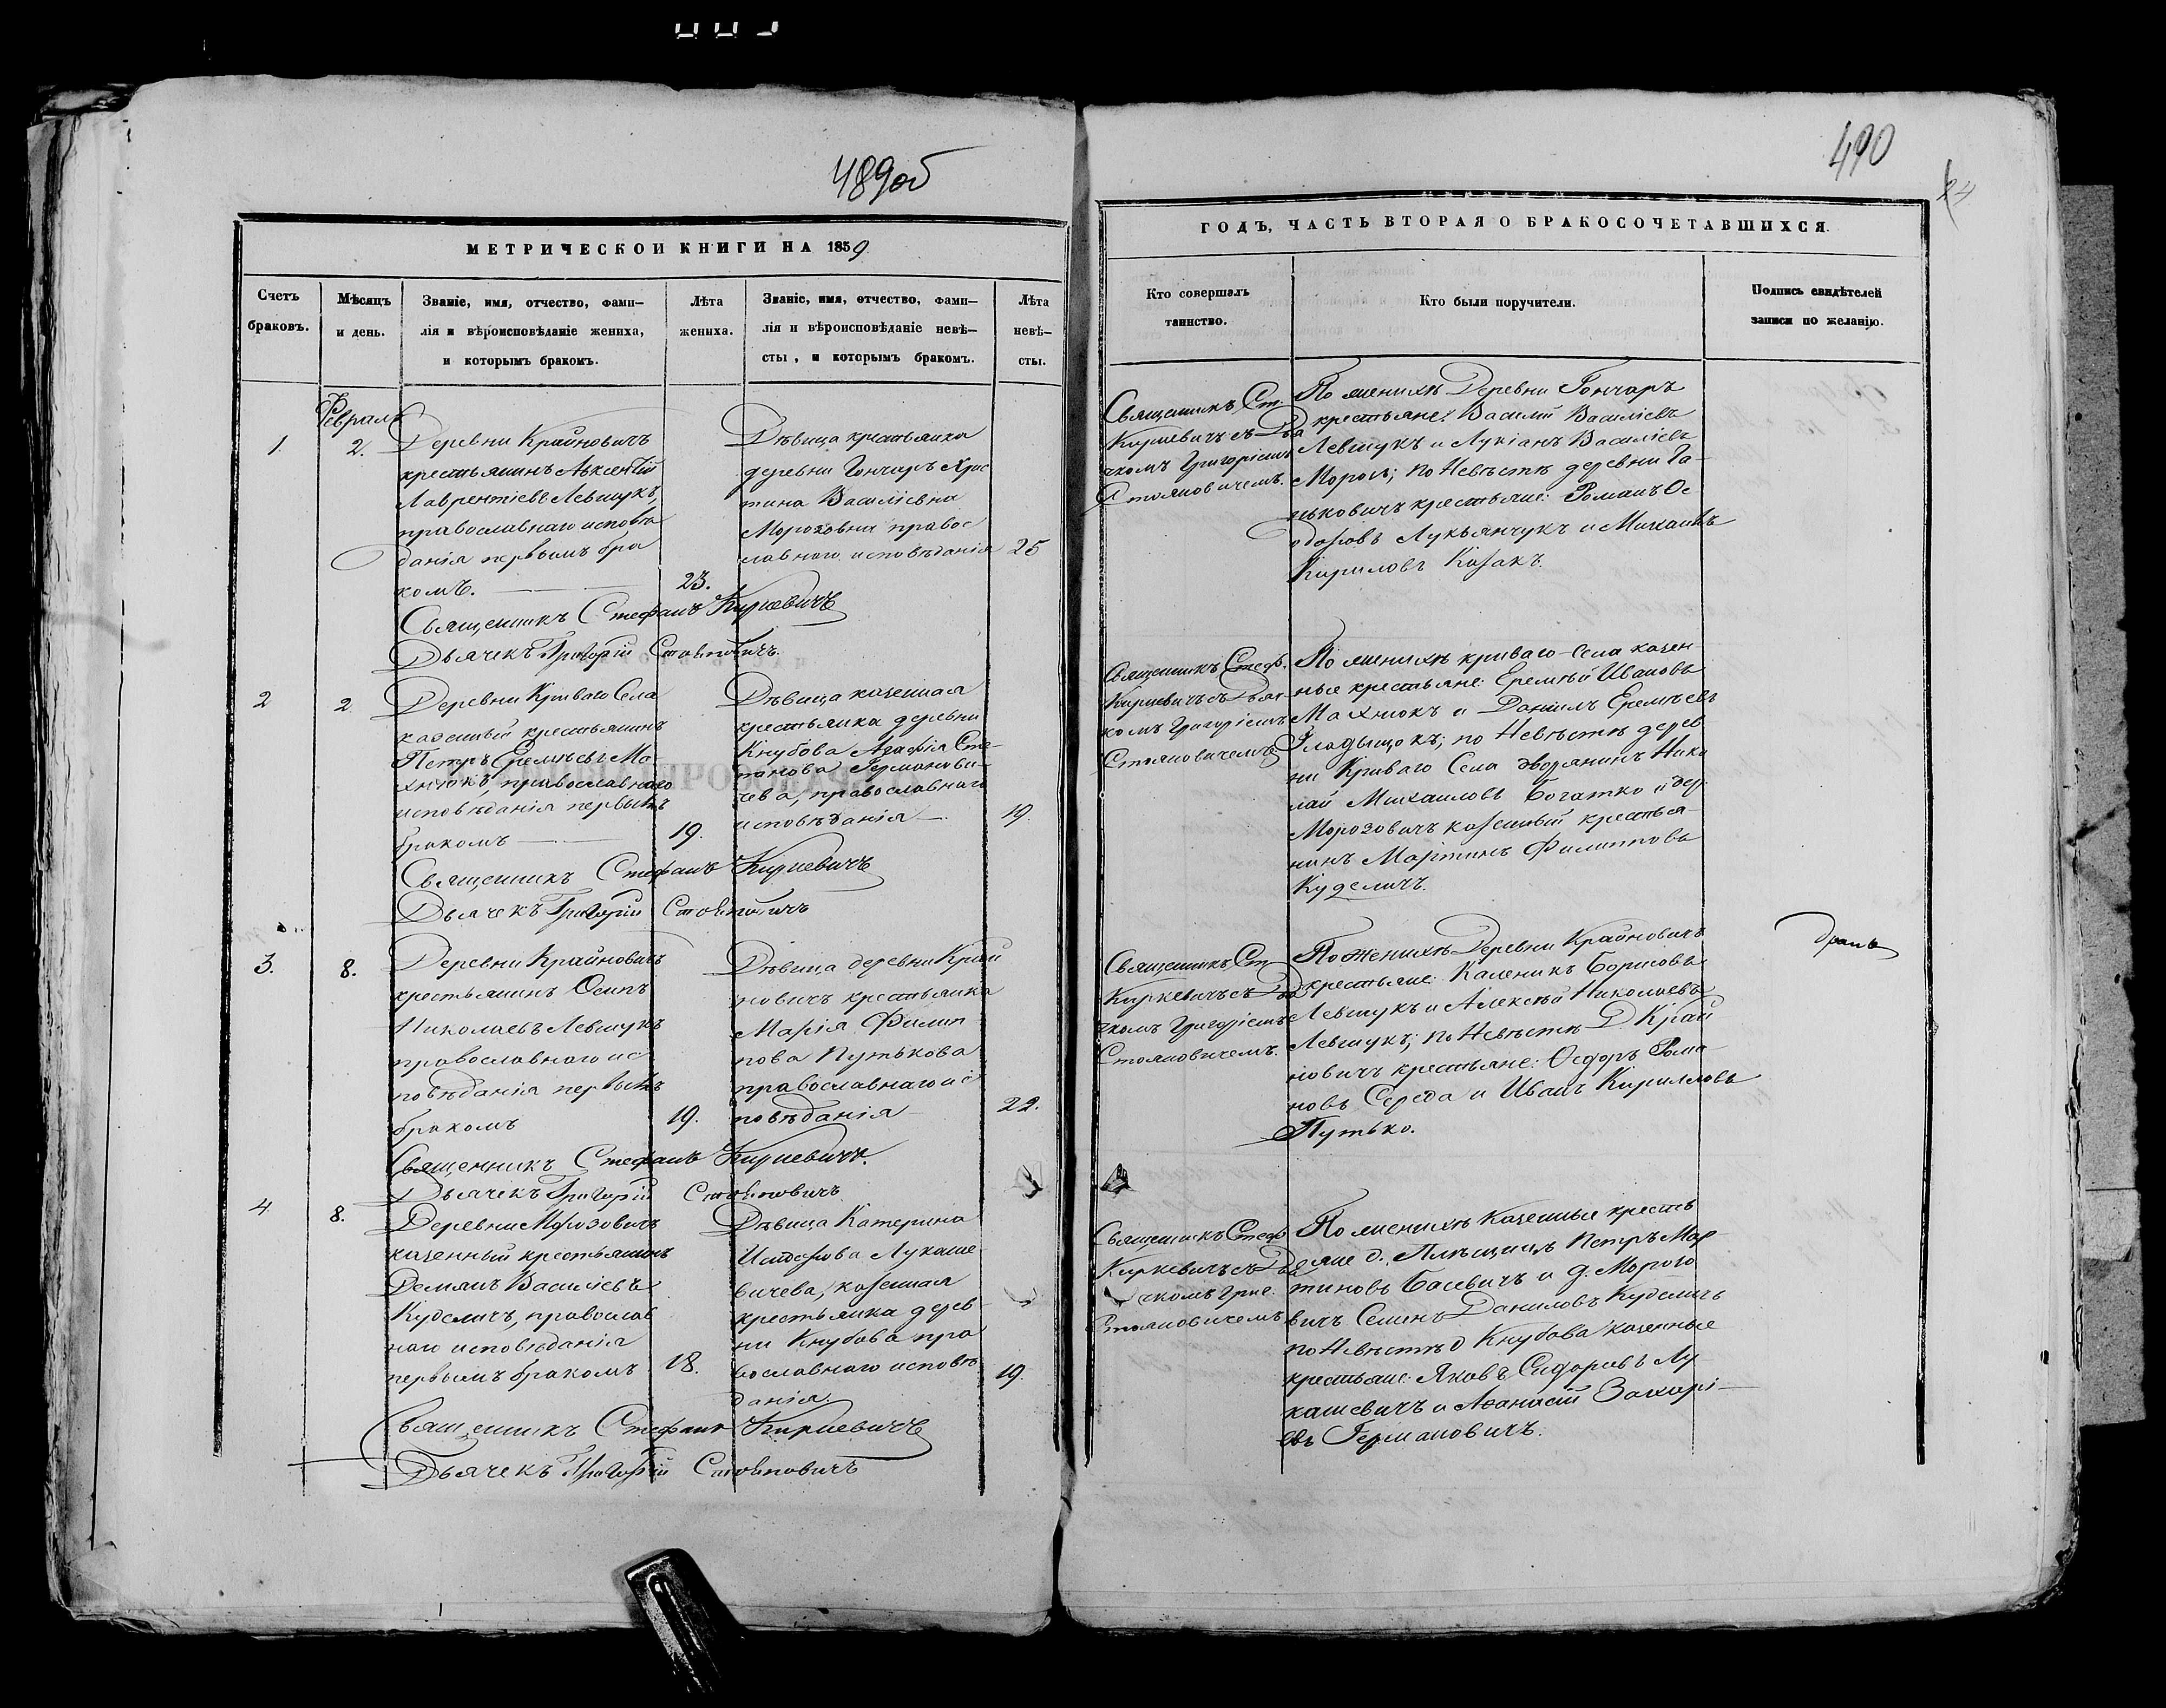 489об
МЕТРИЧЕСКОЙ КНИГИ НА 1859
Счетъ браковъ.
Мѣсяцъ и день.
Званіе, имя, отчество, фами-
лія и вѣроисповѣданіе жениха,
и которымъ бракомъ.
Лѣта жениха.
Званіе, имя, отчество, фами-
лія и вѣроисповѣданіе невѣ-
сты, и которымъ бракомъ.
Лѣта невѣ-
сты.
Февраль
1
2.
Деревни Крайновичъ
крестьянинъ Авксентій
Лаврентіевъ Левчукъ,
православнаго исповѣ
данія первымъ бра
комъ.
23.
Дѣвица крестьянка
деревни Гончаръ Хрис
тина Василіевна
Морозовна правос
лавнаго исповѣданія
25
Священникъ Стефанъ Киркевичъ
Дьячекъ Григорій Стоянович
2
2
Деревни Криваго Села
казенный крестьянинъ
Петръ Еремѣевъ Ма
хнюкъ, православнаго
исповѣданія первымъ
бракомъ
19.
Дѣвица казенная
крестьянка деревни
Кнубова Агафія Сте-
панова Германови-
чева, православнаго
исповѣданія
19.
Священникъ Стефанъ Киркевичъ
Дьячекъ Григорій Стояновичъ
3.
8.
Деревни Крайновичъ
крестьянинъ Осипъ
Николаевъ Левчукъ
православнаго ис
повѣданія первымъ
бракомъ
19.
Дѣвица деревни Край
новичъ крестьянка
Марія Филип
пова Путькова
православнаго ис
повѣданія
22.
Священникъ Стефанъ Киркевичъ.
Дьячекъ Григорій Стояновичъ
4
8.
Деревни Морозовичъ
казенный крестьянинъ
Демянъ Василіевъ
Куделичъ, православ
наго исповѣданія
первымъ бракомъ
18.
Дѣвица Катерина
Лукаше
вичева, казенная
крестьянка дерев-
ни Кнубова пра
вославнаго исповѣ
данія.
19.
Священникъ Стефанъ Киркевичъ
Дьячекъ Григорій Стояновичъ
490
24
ГОДЪ, ЧАСТЬ ВТОРАЯ О БРАКОСОЧЕТАВШИХСЯ.
Кто совершалъ
таинство.
Кто были поручители.
Подпись свидѣтелей
записи по желанію.
Священникъ Ст.
Киркевичъ съ Дья
чкомъ Григоріемъ
Стояновичемъ.
По женихѣ Деревни Гончаръ
крестьяне: Василій Василіевъ
Левчукъ и Лукіанъ Василіевъ
Морозъ; по Невѣстѣ деревни Га-
ньковичъ крестьяне: Романъ Ѳе
одоровъ Лукьянчукъ и Михаилъ
Кириловъ Козакъ.
Священникъ Стеф.
Киркевичъ съ Дьяч-
комъ Григоріемъ
Стояновичемъ
По женихѣ криваго-Села казен-
ные крестьяне: Еремѣй Ивановъ
Махнюкъ и Даніилъ Еремѣевъ
Гладыщокъ; по Невѣстѣ дерев
ни Криваго Села дворянинъ Нико
лай Михаиловъ Богатко и дер.
Морозовичъ казенный крестья
нинъ Мартинъ Филипповъ
Куделичъ.
Священникъ Ст
Киркевичъ съ Дья
чкомъ Григоріемъ
Стояновичемъ.
По Женихѣ Деревни Крайновичъ
крестьяне: Каленикъ Борисовъ
Левчукъ и Алексѣй Николаевъ
Левчукъ; по Невѣстѣ Д Край
новичъ крестьяне: Ѳедоръ Рома-
новъ Середа и Иванъ Кирилловъ
Путько.
Священникъ Стеф
Киркевичъ съ Дья
чкомъ Григ.
Стояновичемъ
По женихѣ Казенные кресть
яне д. Плѣщицъ Петръ Мар-
тиновъ Басевичъ и д. Морозо
вичъ Семенъ Даниловъ Куделичъ
по Невѣстѣ д Кнубова казенные
крестьяне: Яковъ Сидоровъ Лу
кашевичъ и Аѳанасій Захарі-
евъ Германовичъ.